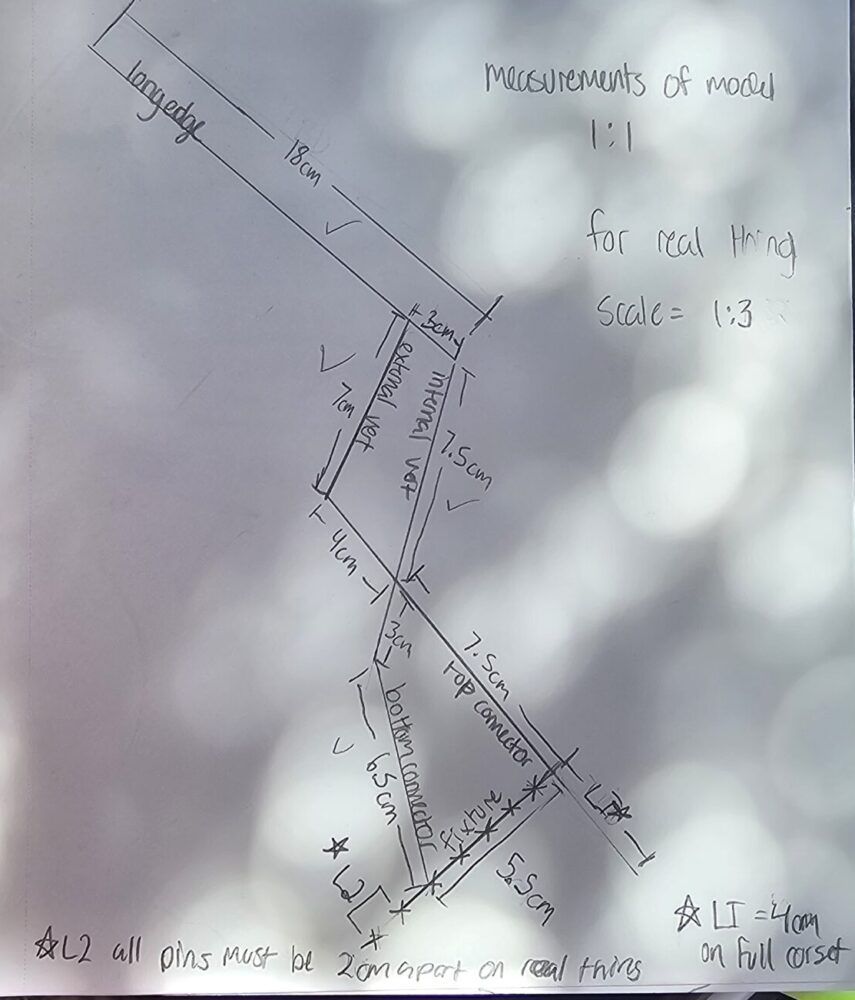 measurements of model
1:1
long edge
18cm
for real thing
Scale = 1:3
3cm
external vert
internal vert
7cm
7.5cm
4cm
3cm
7.5cm
top connector
bottom connector
6.5cm
L1*
5.5cm
L2
☆ L1 = 4cm
on full corset
☆L2 all pins must be 2cm apart on real thing